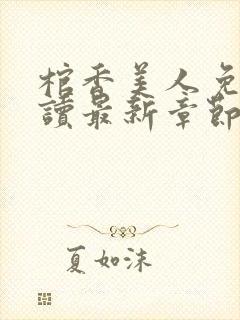 棺香美人免
讀最新章節
夏如沫